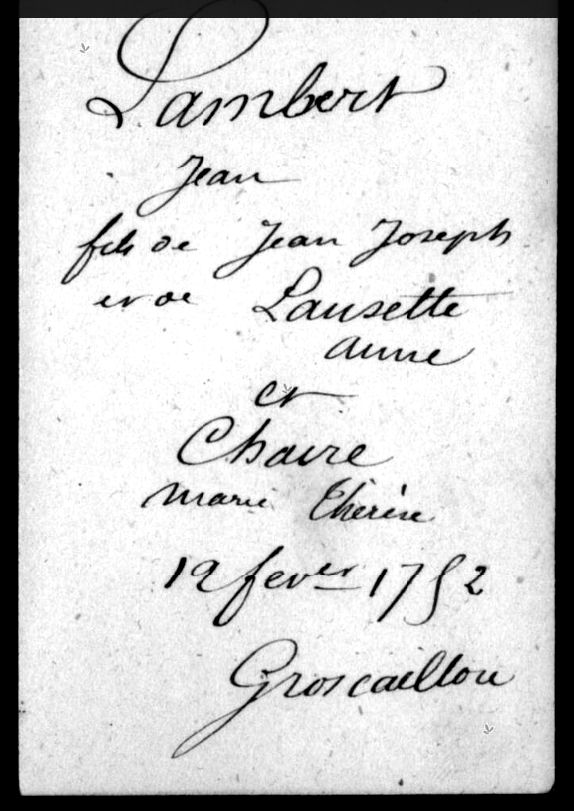 Lambert
Jean
fils de Jean Joseph
et de Lausette
anne
et
Chave
marie thérèse
12 fever 1752
Groscaillou